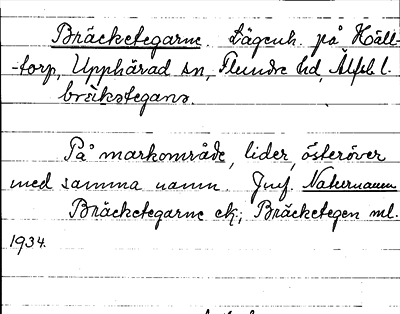 Bräcketegarne. Lägenh. på Häll-
-torp, Upphärad sn, Flundre hd, Älfsb. l.
bräkategana.
På markområde, lider, österöver
med samma namn. Jmf. Naturnamn
Bräcketegarne ek; Bräcketegen ml.
1934.